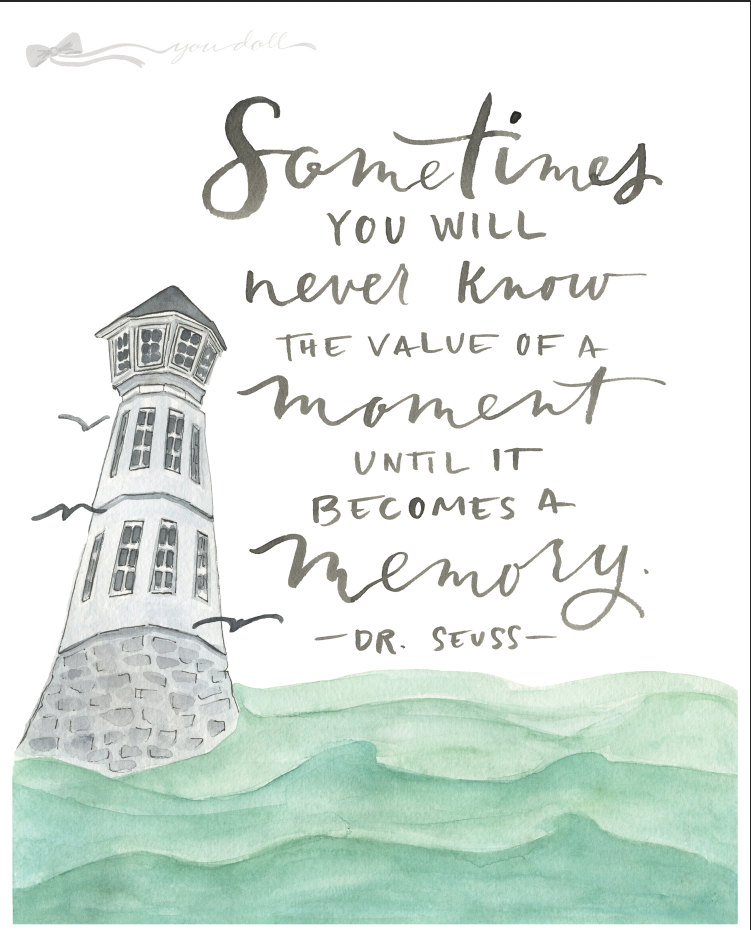 you doll
Sometimes
YOU WILL
never know
THE VALUE OF A
moment
UNTIL IT
BECOMES A
memory.
—DR. SEUSS—